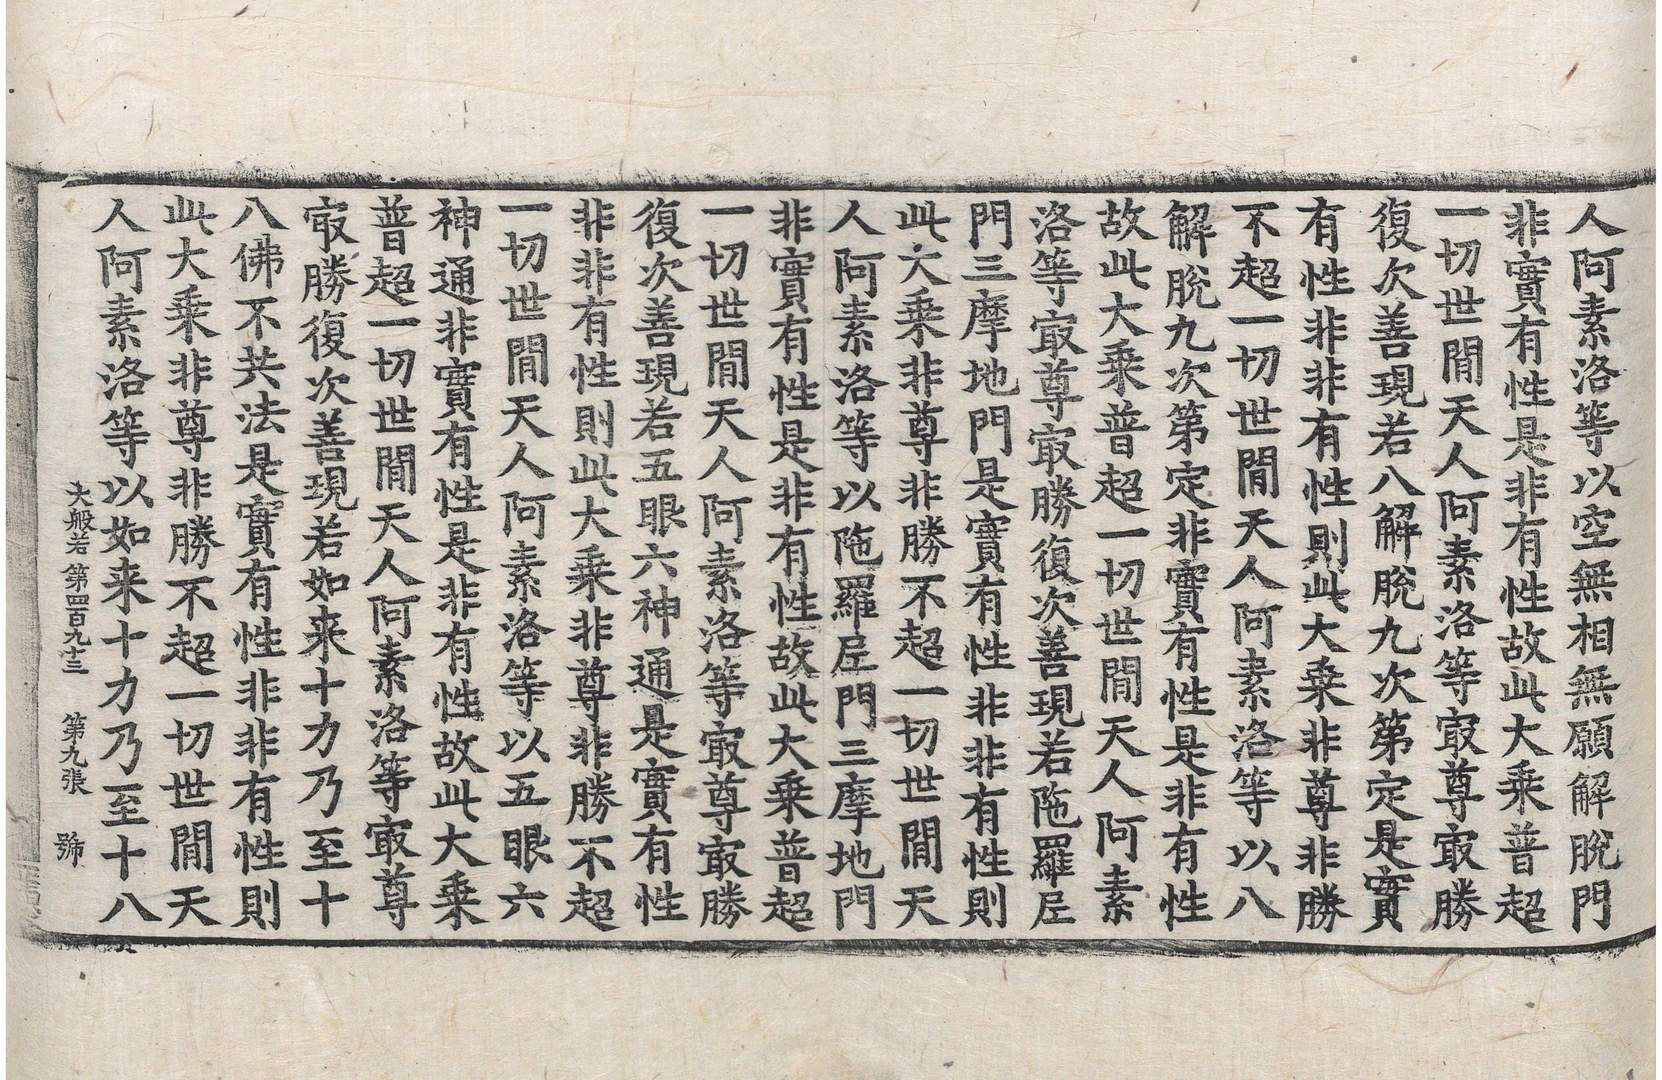 人阿素洛等以空無相無願解脫門
非實有性是非有性故此大乘普超
一切世間天人阿素洛等㝡尊㝡勝
復次善現若八解脫九次第定是實
有性非非有性則此大乘非尊非勝
不超一切世間天人阿素洛等以八
解脫九次第定非實有性是非有性
故此大乘普超一切世間天人阿素
洛等㝡尊㝡勝復次善現若陁羅尼
門三摩地門是實有性非非有性則
此大乘非尊非勝不超一切世間天
人阿素洛等以陁羅尼門三摩地門
非實有性是非有性故此大乘普超
一切世間天人阿素洛等㝡尊㝡勝
復次善現若五眼六神通是實有性
非非有性則此大乘非尊非勝不超
一切世間天人阿素洛等以五眼六
神通非實有性是非有性故此大乘
普超一切世間天人阿素洛等㝡尊
㝡勝復次善現若如来十力乃至十
八佛不共法是實有性非非有性則
此大乘非尊非勝不超一切世間天
人阿素洛等以如来十力乃至十八
大般若第四百九十三 第九張 號